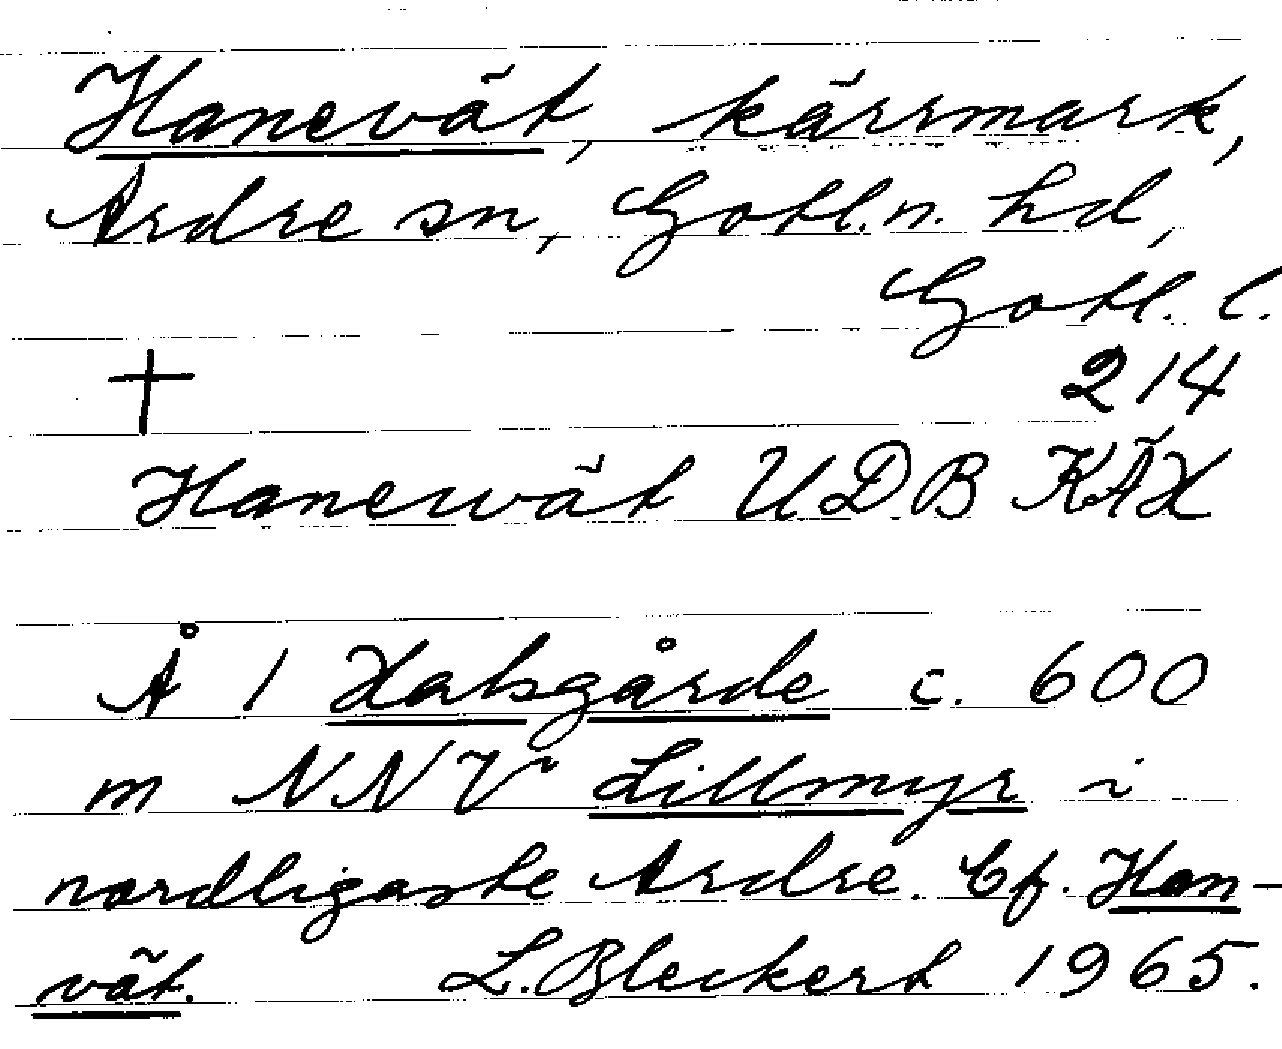 Hanevät, kärrmark,
Ardre sn, Gotl.n. hd,
Gotl. l.
† 214
Hanewät UDB KÄX
Å 1 Halsgårde c. 600
m NNV Lillmyr i
nordligaste Ardre. Cf. Han-
vät. L. Bleckert 1965.